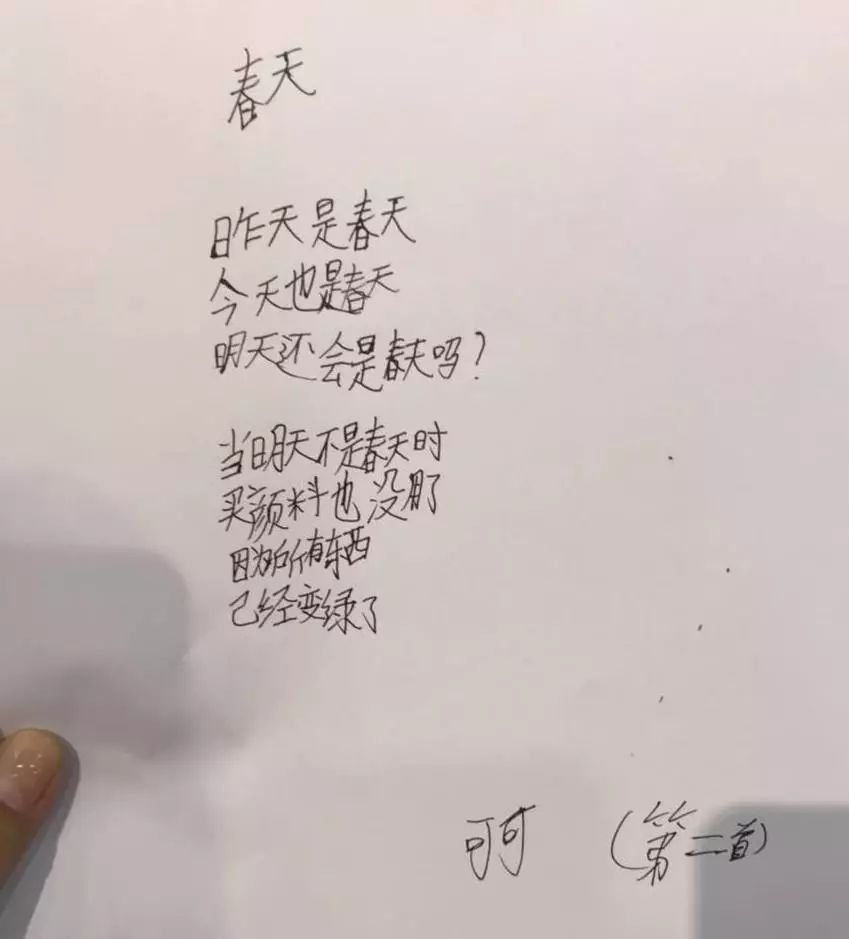 春天
昨天是春天
今天也是春天
明天还会是春天吗?
当明天不是春天时
买颜料也没用了
因为所有东西
已经变绿了
可可 (第二首)